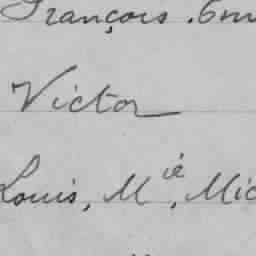 François . Em
Victor
Louis, M ie, Mic